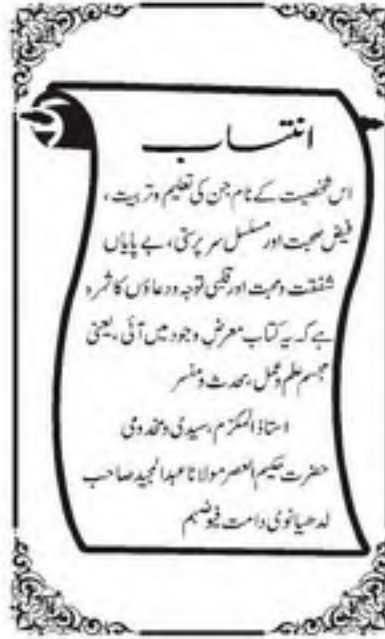 انتساب
اس شخصیت کے نام جن کی تعلیم وتربیت ،
فیض صحبت اور مسلسل سرپرستی ، بے پایاں
شفقت ومحبت اور قلبی توجہ ودعاؤں کا ثمرہ
ہے کہ یہ کتاب معرض وجود میں آئی ، یعنی
مجسم علم وعمل ، محدث ومفسر
استاذ المکرم ، سیدی ومخدومی
حضرت حکیم العصر مولانا عبدالمجید صاحب
لدھیانوی دامت فیوضہم